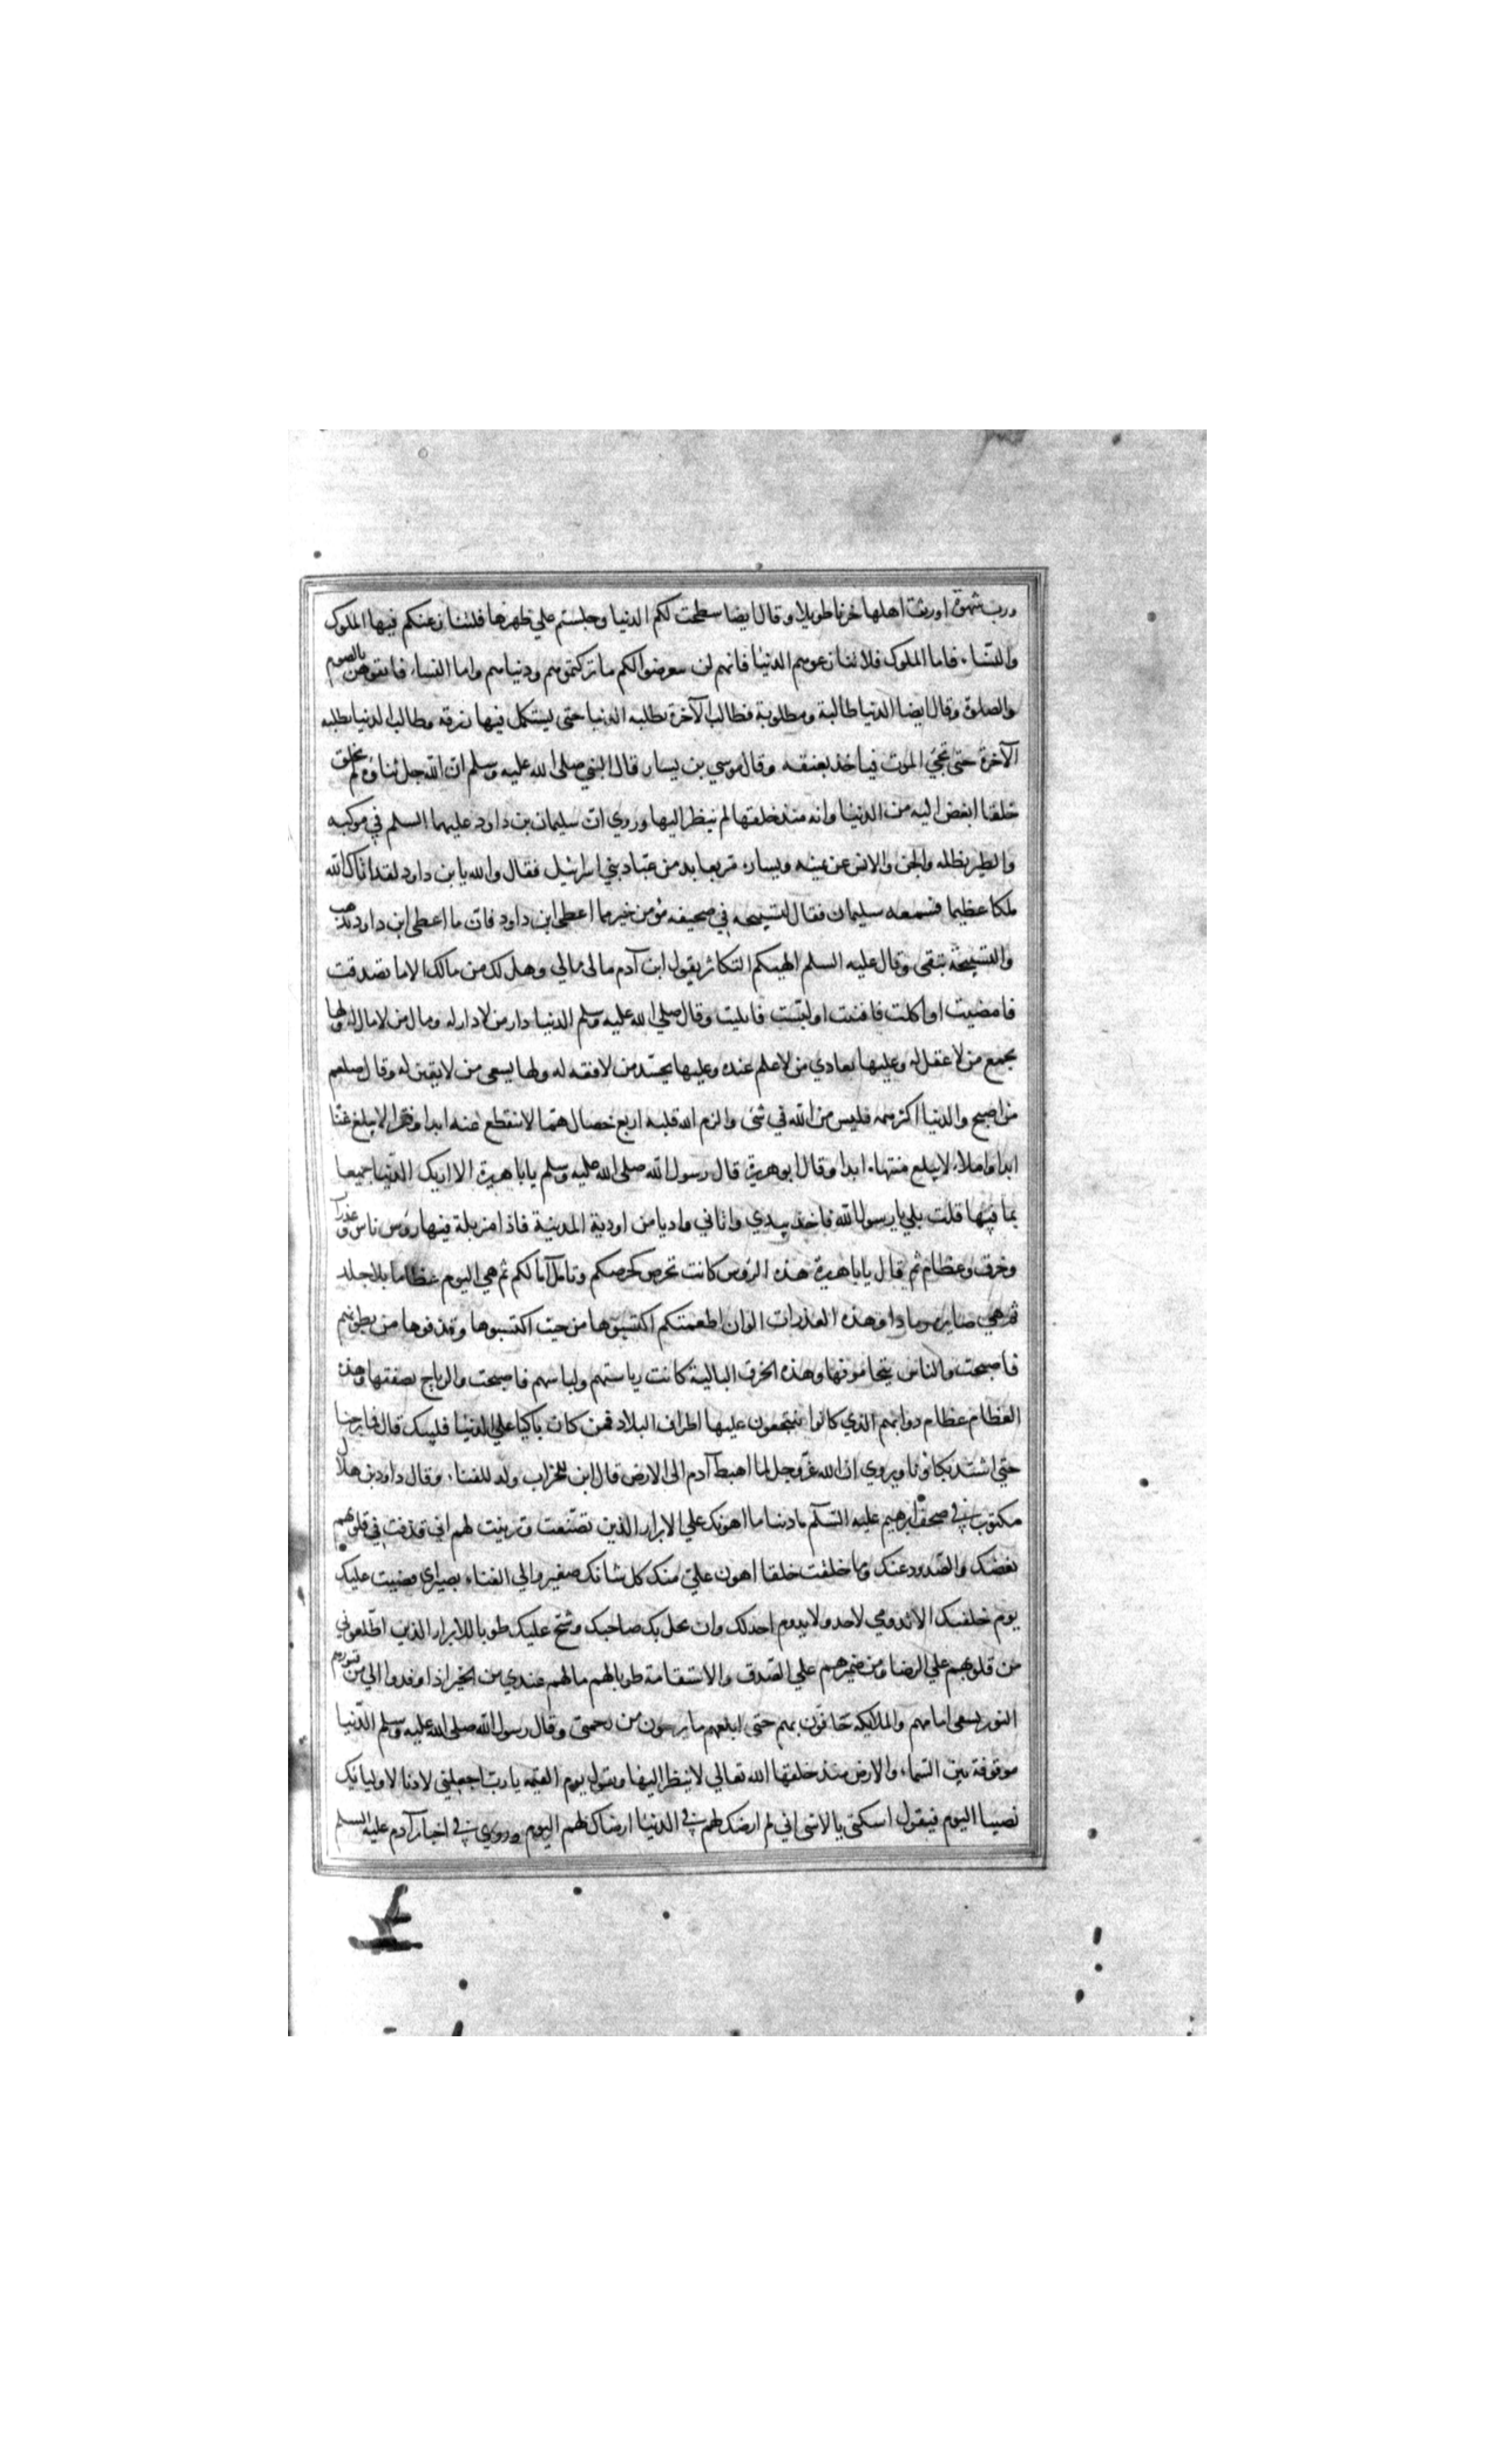 ورب شهوة اورثت اهلها حزنا طويلا وقال ايضا سطحت لكم الدنيا وجلستم علي ظهرها فلا ينازعنكم فيها الملوك
والنساء فاما الملوك فلا تنازعوهم الدنيا فانهم لن يعرضوا لكم ما تركتموهم ودنياهم واما النساء فاتقوهن بالصوم
والصلوة وقال ايضا الدنيا طالبة ومطلوبة فطالب الآخرة تطلبه الدنيا حتى يستكمل فيها رزقه وطالب الدنيا تطلبه
الآخرة حتى يجئ الموت فياخذ بعنقه وقال موسي بن يسار قال النبي صلى الله عليه وسلم ان الله جل ثناؤه لم يخلق
خلقا ابغض اليه من الدنيا وانه منذ خلقها لم ينظر اليها وروي ان سليمان بن داود عليهما السلم في موكبه
والطير تظله والجن والانس عن يمينه ويساره مر بعابد من عباد بني اسرائيل فقال والله يا بن داود لقد اتاك الله
ملكا عظيما فسمعه سليمان فقال لتسبيحه في صحيفه مؤمن خير مما اعطى ابن داود فان ما اعطى ابن داود يذهب
والتسبيحة تبقى وقال عليه السلم الهيكم التكاثر يقول ابن آدم مالى مالي وهل لك من مالك الا ما تصدقت
فامضيت او اكلت فافنيت او لبست فابليت وقال صلى الله عليه وسلم الدنيا دار من لا دار له ومال من لا مال له ولها
يجمع من لا عقل له وعليها يعادي من لا علم عنده وعليها يحسد من لا فقه له ولها يسعى من لا يقين له وقال صلعم
من اصبح والدنيا اكثر همه فليس من الله في شئ والزم الله قلبه اربع خصال هما لا ينقطع عنه ابدا وفقرا لا يبلغ غنا
ابدا واملا لا يبلغ منتهاه ابدا وقال ابو هريرة قال رسول الله صلى الله عليه وسلم يا باهريرة الا اريك الدنيا جميعا
بما فيها قلت بلي يا رسول الله فاخذ بيدي واتاني واديا من اودية المدينة فاذا مزبلة فيها رؤس ناس وعذرات
وخرق وعظام ثم قال يا باهريرة هذه الرؤس كانت تحرص كحرصكم وتامل آمالكم ثم هي اليوم عظاما بلا جلد
ثم هي صايرة رمادا وهذه العذرات الوان اطعمتكم اكتسبوها من حيث اكتسبوها وقذفوها من بطونهم
فاصبحت والناس يتحامونها وهذه الخرق البالية كانت رياشهم ولباسهم فاصبحت والرياح تصفقها وهذه
العظام عظام دوابهم الذي كانوا ينتجعون عليها اطراف البلاد فمن كان باكيا علي الدنيا فليبك قال فما برحنا
حتي اشتد بكاؤنا ويروي ان الله عز وجل لما اهبط آدم الى الارض قال ابن للخراب ولد للفناء وقال داود بن هلال
مكتوب في صحف ابرهيم عليه السلم يا دنيا ما اهونك علي الابرار الذين تصنعت وتزينت لهم اني قذفت في قلوبهم
بغضك والصدود عنك وما خلقت خلقا اهون علي منك كل شانك صغير والي الفناء تصيري قضيت عليك
يوم خلقتك الا تدومي لاحد ولا يدوم احد لك وان بخل بك صاحبك وشح عليك طوبا للابرار الذين اطلعوني
من قلوبهم علي الرضا ومن ضميرهم علي الصدق والاستقامة طوبا لهم ما لهم عندي من الخير اذا وفدوا الي من قبورهم
النور يسعى امامهم والملايكة حافون بهم حتى ابلغهم ما يرجون من رحمتى وقال رسول الله صلى الله عليه وسلم الدنيا
موقوفة بين السماء والارض منذ خلقها الله تعالي لا ينظر اليها وتقول يوم القيمه يا رب اجعلني لادنا لاوليائك
نصيبا اليوم فيقول اسكتى يا لا شئ اني لم ارضك لهم في الدنيا ارضاك لهم اليوم وروي في اخبار آدم عليه السلم